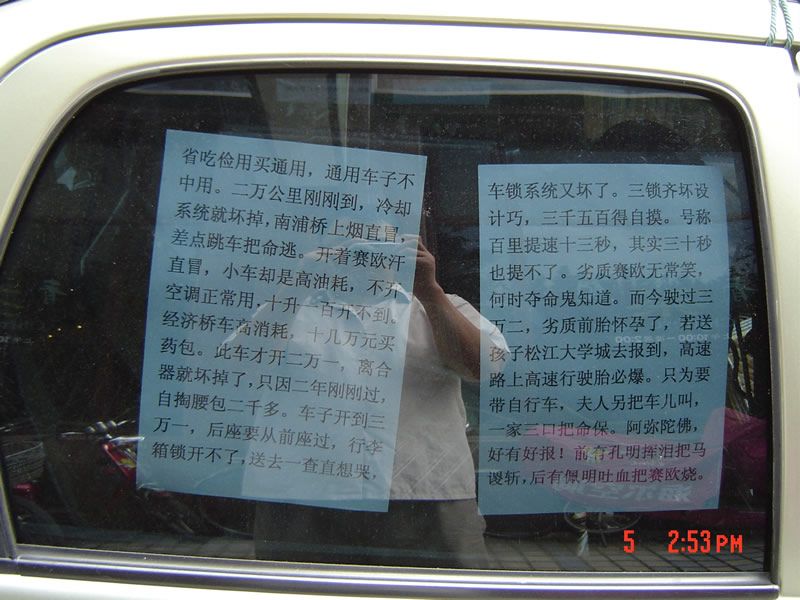 省吃俭用买通用，通用车子不
中用。二万公里刚刚到，冷却
系统就坏掉，南浦桥上烟直冒，
差点跳车把命逃。开着赛欧汗
直冒，小车却是高油耗，不开
空调正常用，十升一百开不到。
经济桥车高消耗，十几万元买
药包。此车才开二万一，离合
器就坏掉了，只因二年刚刚过，
自掏腰包二千多。车子开到三
万一，后座要从前座过，行李
箱锁开不了，送去一查直想哭，
车锁系统又坏了。三锁齐坏设
计巧，三千五百得自摸。号称
百里提速十三秒，其实三十秒
也提不了。劣质赛欧无常笑，
何时夺命鬼知道。而今驶过三
万二，劣质前胎怀孕了，若送
孩子松江大学城去报到，高速
路上高速行驶胎必爆。只为要
带自行车，夫人另把车儿叫，
一家三口把命保。阿弥陀佛，
好有好报！前有孔明挥泪把马
谡斩，后有佩明吐血把赛欧烧。
5 2:53PM